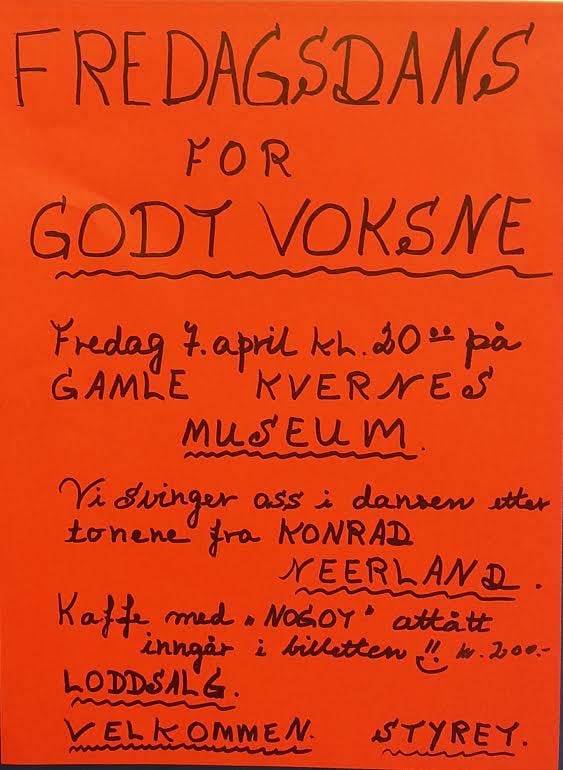 FREDAGSDANS
FOR
GODT VOKSNE
Fredag 7. april kl. 20⁰⁰ på
GAMLE KVERNES
MUSEUM.
Vi svinger oss i dansen etter
tonene fra KONRAD
NEERLAND.
Kaffe med "NOGOT" attått
inngår i billetten !! kr. 200.-
LODDSALG.
VELKOMMEN. STYRET.